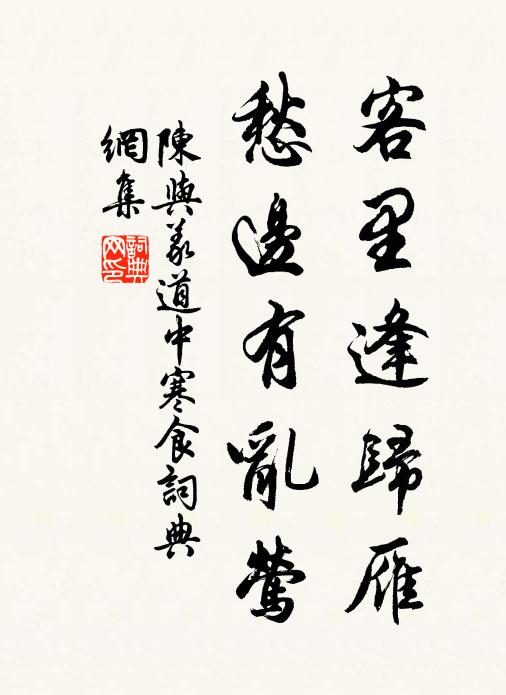 客里逢歸雁
愁邊有亂鶯
陳與義道中寒食詞典
網集
詞典
网印